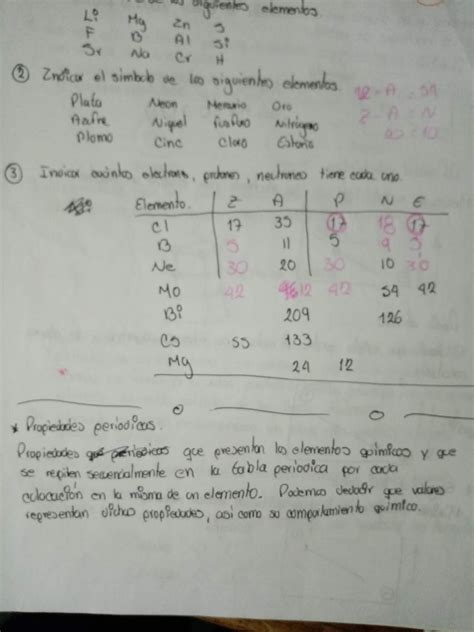 siguientes elementos.
Li Mg Zn S
F B Al Si
Sr Na Cr H
② Indicar el simbolo de los siguientes elementos.
Plata Neon Mercurio Oro
Azufre Niquel Fosforo Nitrógeno
Plomo Cinc Cloro Estaño
③ Indicar cuántos electrones, protones, neutrones tiene cada uno.
Elemento. Z A P N E
Cl 17 35 17 18 17
B 5 11 5 9 5
Ne 30 20 30 10 30
Mo 42 42 54 42
Bi 209 126
Cs 55 133
Mg 24 12
* Propiedades periodicas.
Propiedades que presentan los elementos químicos y que
se repiten secuencialmente en la tabla periodica por cada
colocación en la misma de un elemento. Podemos deducir que valores
representan dichas propiedades, así como su comportamiento químico.